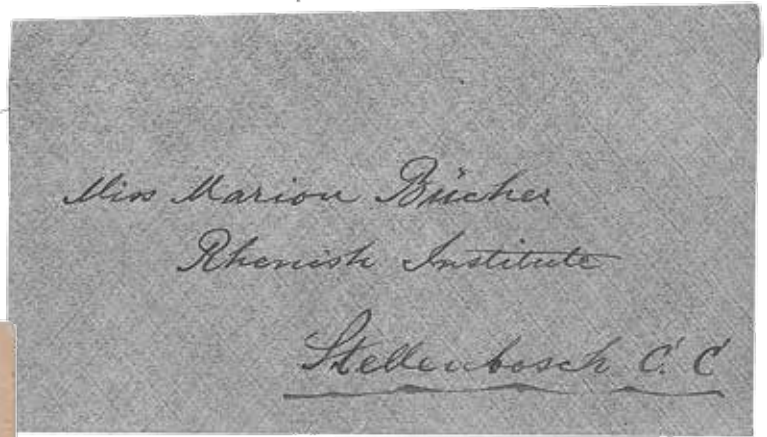 Miss Marion Bücher
Rhenish Institute
Stellenbosch C. C